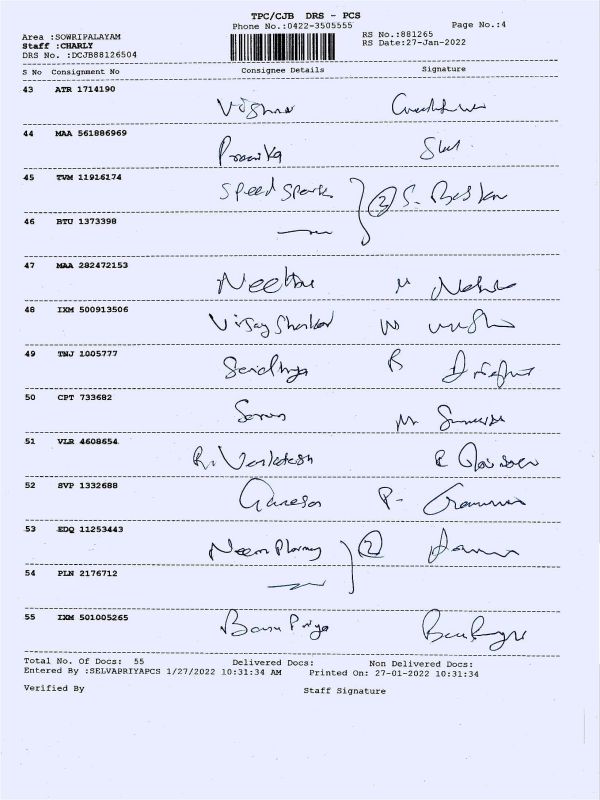 TPC/CJB DRS - PCS
Phone No.:0422-3505555
Page No.:4
Area :SOWRIPALAYAM
RS No.:881265
Staff :CHARLY
RS Date:27-Jan-2022
DRS No. :DCJB88126504
S No Consignment No Consignee Details Signature
43 ATR 1714190
Vishnu
44 MAA 561886969
45 TVM 11916174
Speed Spark 2 S. Baskar
46 BTU 1373398
47 MAA 282472153
Neethu
48 IXM 500913506
Vijay Shankar
49 TNJ 1005777
50 CPT 733682
51 VLR 4608654
R. Venkatesh
52 SVP 1332688
Ganesan P-
53 EDQ 11253443
Neem Pharmacy 2
54 PLN 2176712
55 IXM 501005265
Banu Priya
Total No. Of Docs: 55 Delivered Docs: Non Delivered Docs:
Entered By :SELVAPRIYAPCS 1/27/2022 10:31:34 AM Printed On: 27-01-2022 10:31:34
Verified By Staff Signature